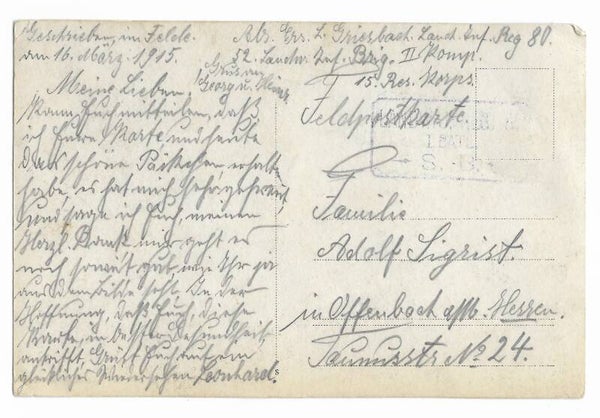 Geschrieben, im Felde.
den 16. März, 1915.
Abs. Ers. L. Griesbach. Landw. Inf. Reg 80.
52. Landw. Inf. Brig. II Komp.
15. Res. Korps.
Gruß an
Georg u.
Feldpostkarte.
S. B.
Meine Lieben.
Kann Euch mitteilen, daß
ich Eure Karte und heute
das schöne Päckchen erhalten
habe, es hat mich sehr gefreut,
und sage ich Euch, meinen
Herzl. Dank mir geht es
noch soweit gut, wie Ihr ja
aus dem Bilde seht. In der
Hoffnung, daß Euch, diese
Karte, in bester Gesundheit
antrifft. Grüßt Euch auf ein
glückliches Wiedersehen Leonhard.
Familie
Adolf Sigrist.
in Offenbach a/M. Hessen.
Taunusstr No 24.